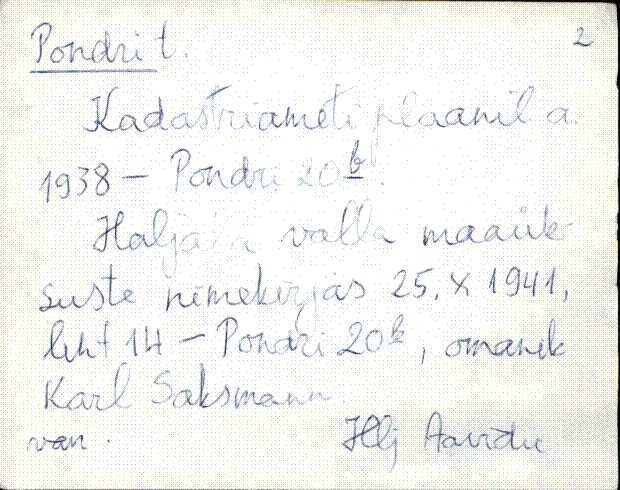 Pondri t. 2
Kadastriameti plaanil a.
1938 – Pondri 20b.
Haljala valla maaük-
suste nimekirjas 25. X 1941,
leht 14 – Pondri 20b, omanik
Karl Saksmann.
van. Hlj Aavidu